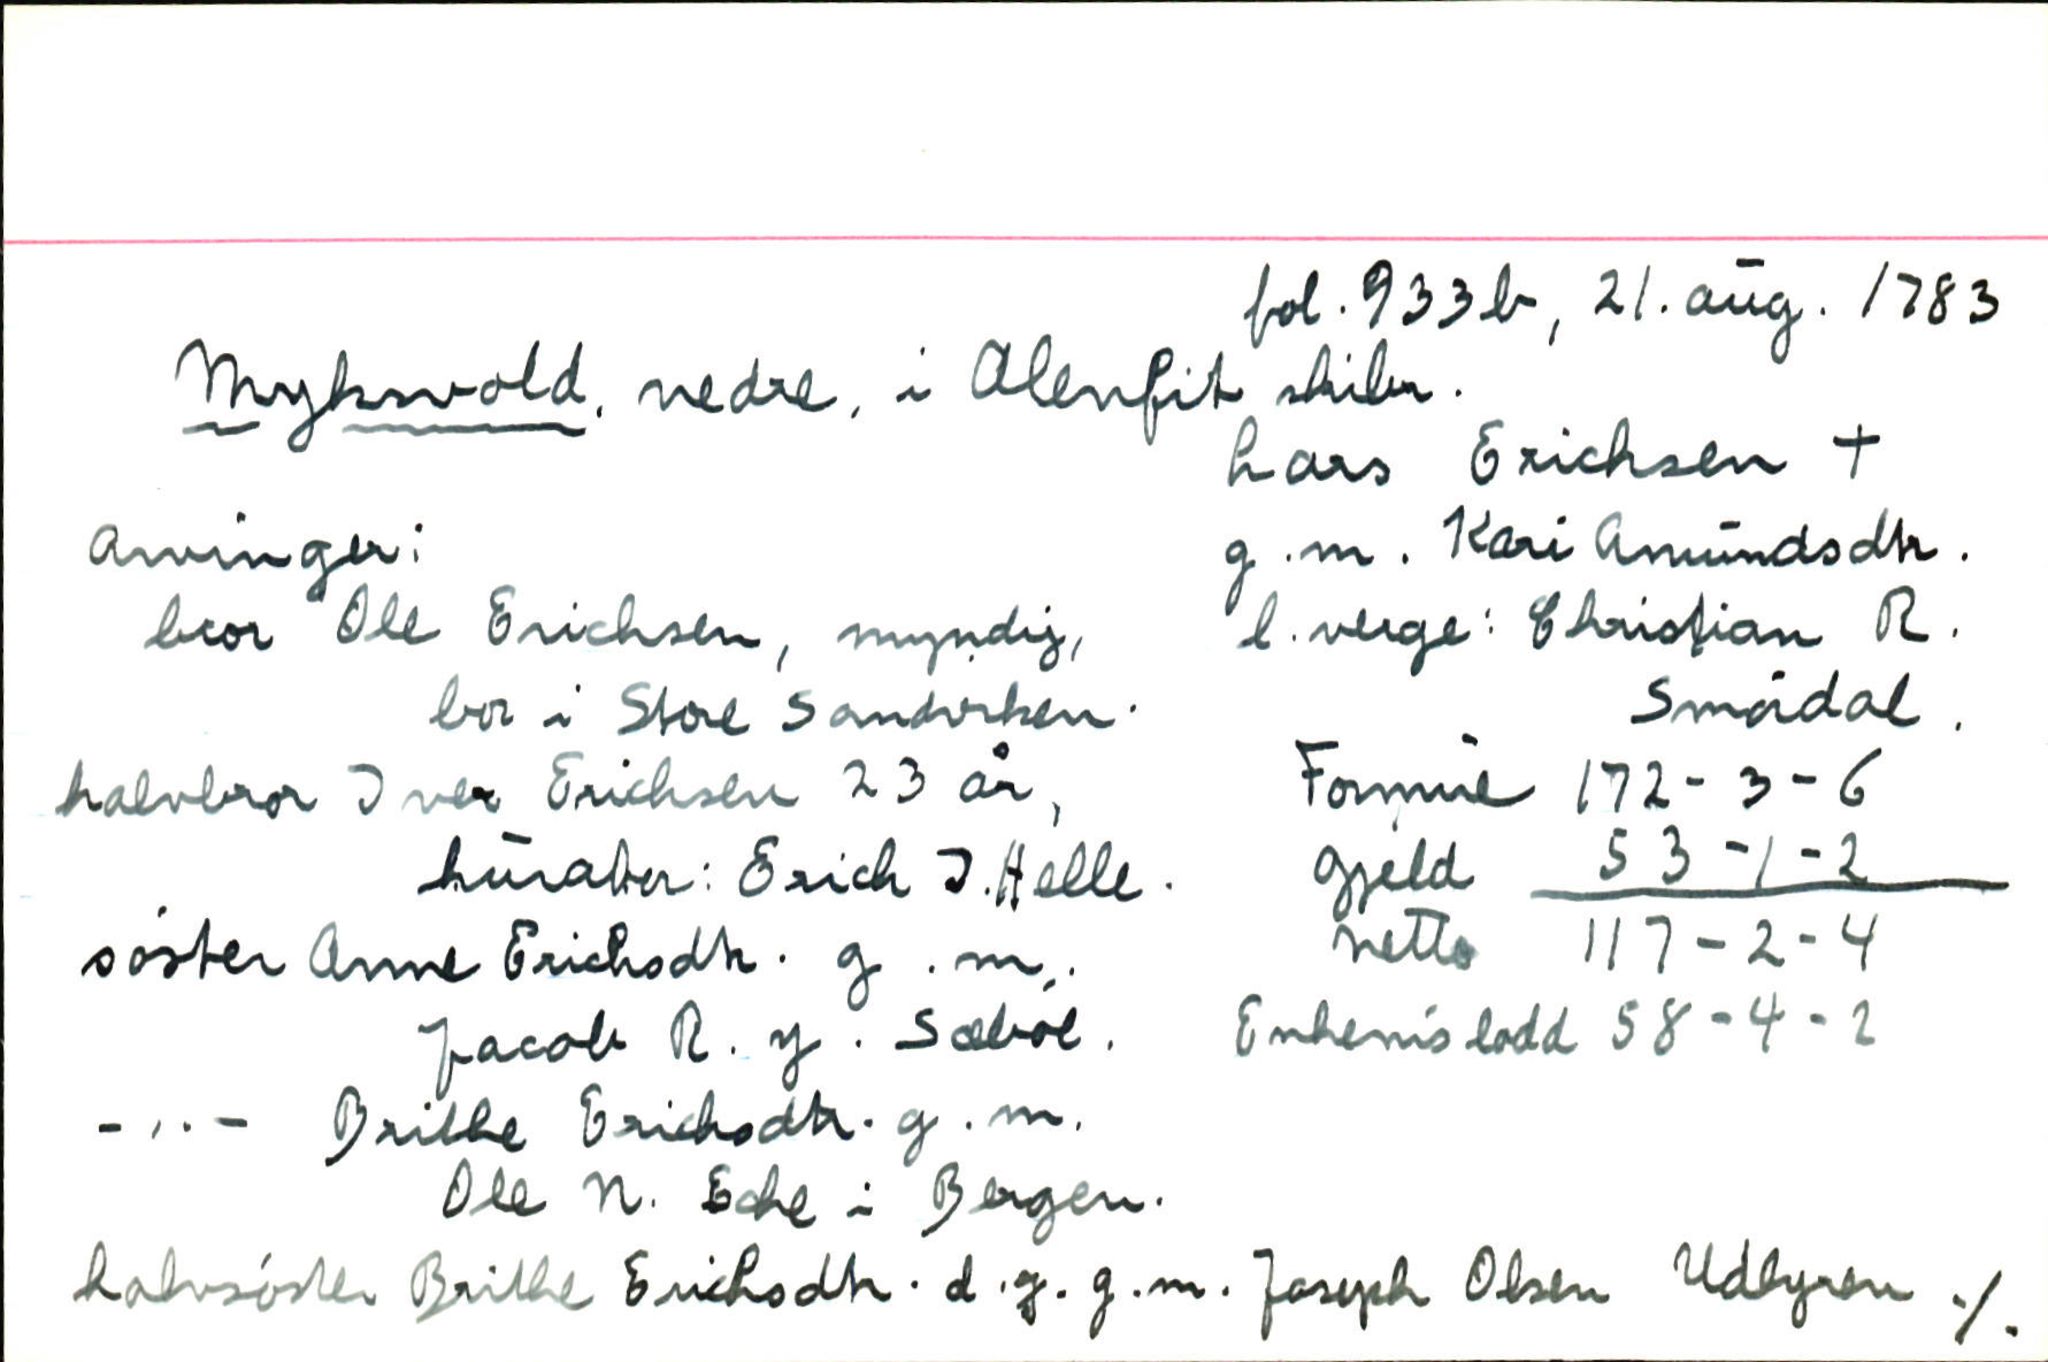 fol. 933b, 21. aug. 1783
Mykswold, nedre, i Alenfit skibr.
Lars Erichsen +
g.m. Kari Amundsdtr.
l. verge: Christian R.
Smådal.
Formue 172-3-6
Gjeld 53-1-2
Netto 117-2-4
Enkens lodd 58-4-2
Arvinger:
bror Ole Erichsen, myndig,
bor i Store Sandviken.
halvbror Iver Erichsen 23 år,
kurator: Erich I. Helle.
søster Anne Erichsdtr. g.m.
Jacob R. y. Sæbøe.
-"- Brithe Erichsdtr. g.m.
Ole N. Eche i Bergen.
halvsøster Brithe Erichsdtr. d.y. g.m. Joseph Olsen Udbyren ./.